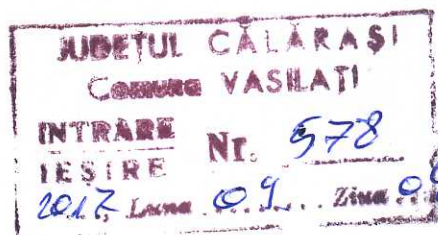 JUDEŢUL CĂLĂRAŞI
Comuna VASILAŢI
INTRARE
IEŞIRE Nr. 578
2017 Luna 09 Ziua